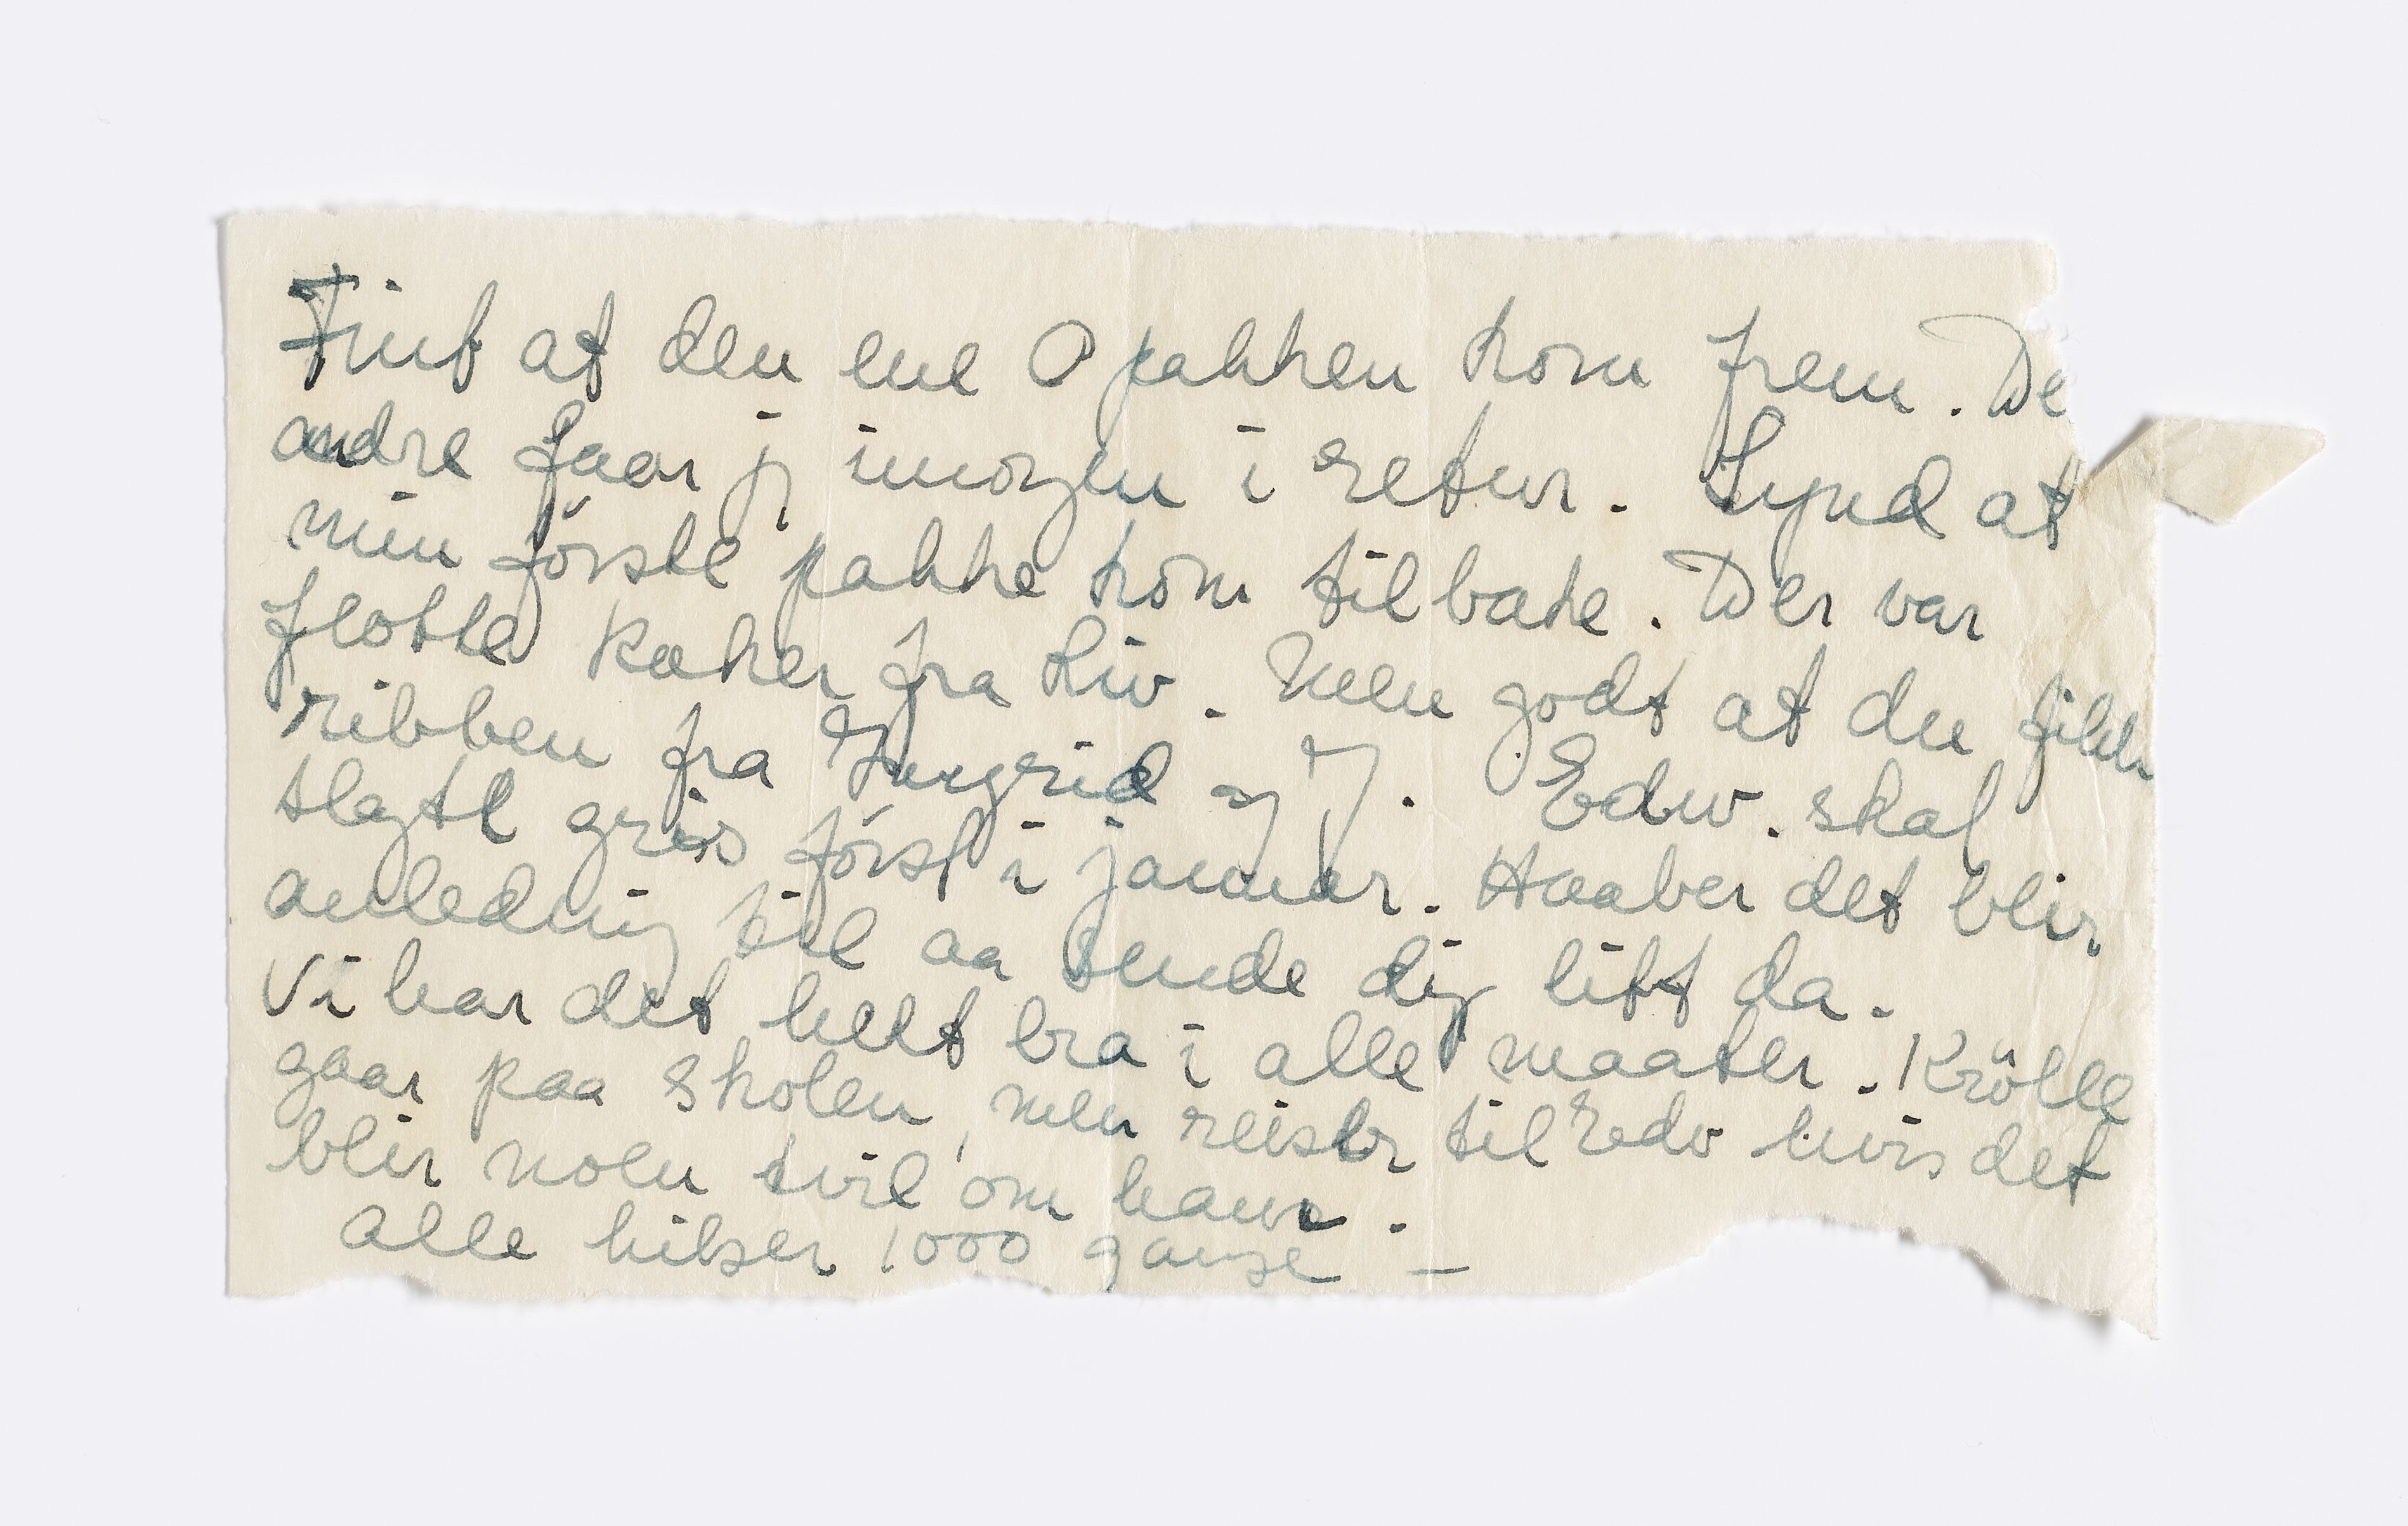 Fint at den ene O pakken kom frem. De
andre faar jeg imorgen i retur. Synd at
min første pakke kom tilbake. Der var
flotte kaker fra Liv. Men godt at du fikk
ribben fra Ingrid og J. Edw. skal
slagte gris først i januar. Haaber det blir
anledning til aa sende dig litt da.
Vi har det helt bra i alle maater. Krölle
gaar paa skolen, men reiser til Edv hvis det
blir noen tvil om ham.
Alle hilser 1000 gange –